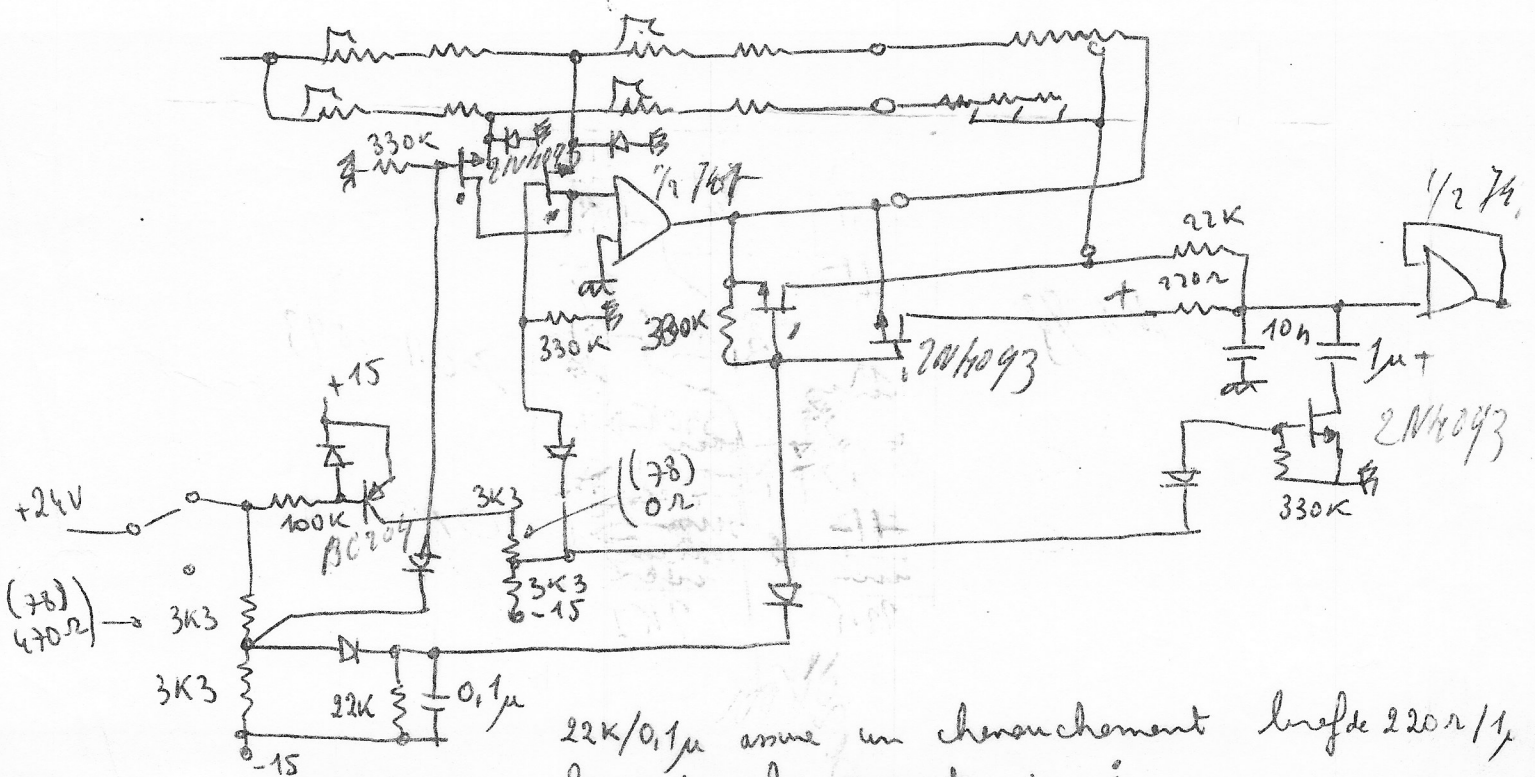 330K
2N4093
1/2 747
1/2 74
22K
220Ω
+
330K
330K
10n
1µ+
2N4093
2N4093
330K
+15
(78)
0Ω
+24V
100K
BC204
3K3
3K3
-15
(78)
470Ω
3K3
3K3
22K
0,1µ
-15
22K/0,1µ assure un chevauchement bref de 220Ω/1µ